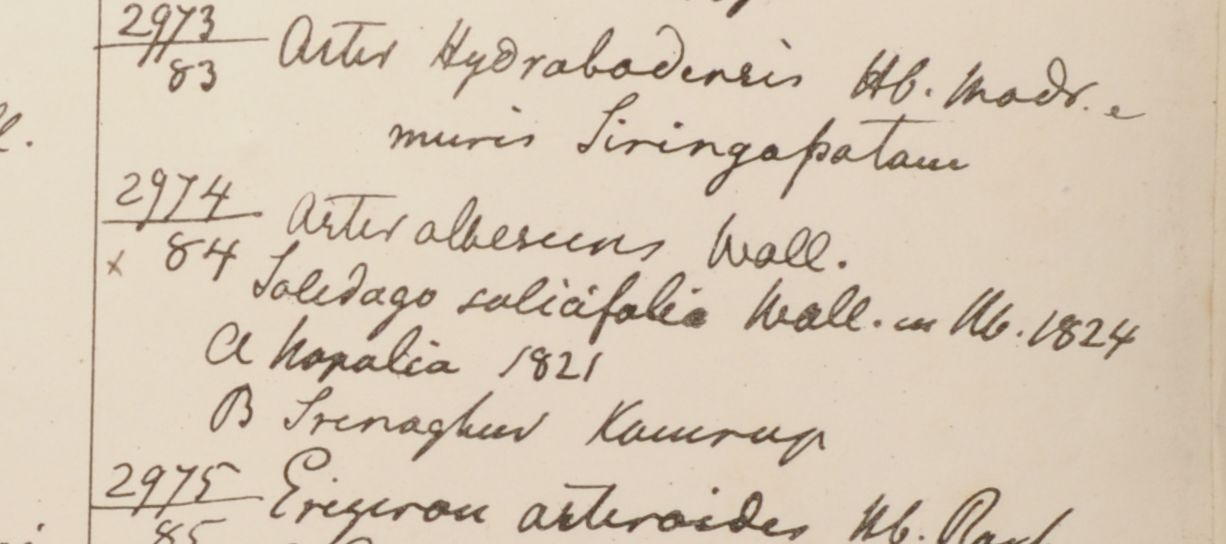 2973 Aster Hydrabadensis Hb. Madr. e
83
muris Siringapatam
2974 Aster albescens Wall.
x 84
Soledago salicifolia Wall. in Hb. 1824
A Napalia 1821
B Srenaghur Kamrup
2975 Erigeron asteroides Hb. Roxb
85